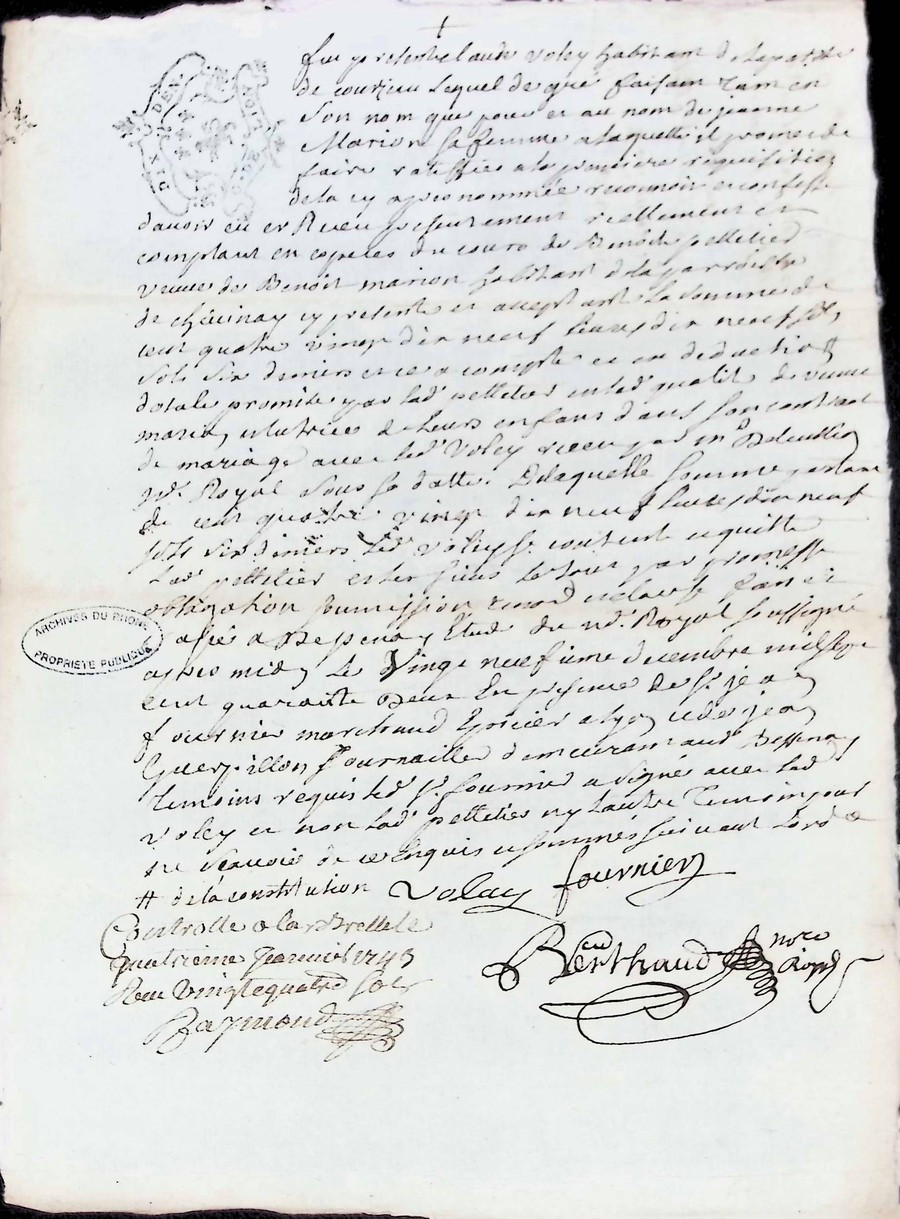 fut present claude voley habitant de la parr.sse
de courzieu Lequel de gré faisant tam en
Son nom que pour et au nom de jeanne
Marion sa femme a laquelle il promet de
faire ratiffier a la premiere requisition
de la cy apres nommée reconnoit et confesse
davoir eu et Receu presentement reellement et
comptant en especes du cours de Benoite pelletier
veuve de Benoit marion habitant de la parroisse
de chevinay cy presente et acceptant La somme de
cent quatre vingt dix neuf livres dix neuf
sols six deniers et ce a compte et en deduction #
dotale promise par lad.e pelletier en lad.e qualité de veuve
marion et tutrice de leurs enfans dans son contract
de mariage avec led.t Voley receu par m.e
n.re Royal sous sa datte. De laquelle somme
de cent quatre vingt dix neuf livres dix neuf
sols six deniers led.t voley se contente et quitte
lad.e pelletier et les siens le tout par promesse
obligation soumission renon et clause fait et
passé a Bessenay Etude du n.re Royal soussigné
apres midy Le Vingt neufieme decembre mil sept
cent quarante Deux En presence de S.r jean
fournier marchand Epicier a lyon et de jean
Guerpillon fournaillier demeurant aud.t Bessenay
temoins requis led.t s.r fournier a signé avec led.t
voley et non lad.e pelletier ny lautre Temoin pour
ne scavoir de ce Enquis et sommés suivant Lord.e
# de la constitution
Volay fournier
Controllé a larbrelle le
quatrieme Janvier 1743
Receu Vingt quatre sols
Raymond
Berthaud no.re
Royal
ARCHIVES DU RHONE
PROPRIETE PUBLIQUE